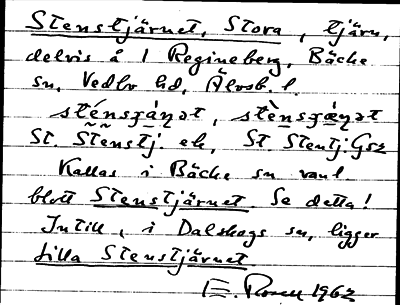 Stenstjärnet, Stora, tjärn,
delvis å 1 Regineberg, Bäcke
sn, Vedbo hd, Älvsb. l.
sténsʃä̀ɳət, stènsʃä́ɳət
St. Stenstj. ek, St. Stentj. Gsz
Kallas i Bäcke sn vanl.
blott Stenstjärnet. Se detta!
Intill, i Dalskogs sn, ligger
Lilla Stenstjärnet.
E. Rosell 1962